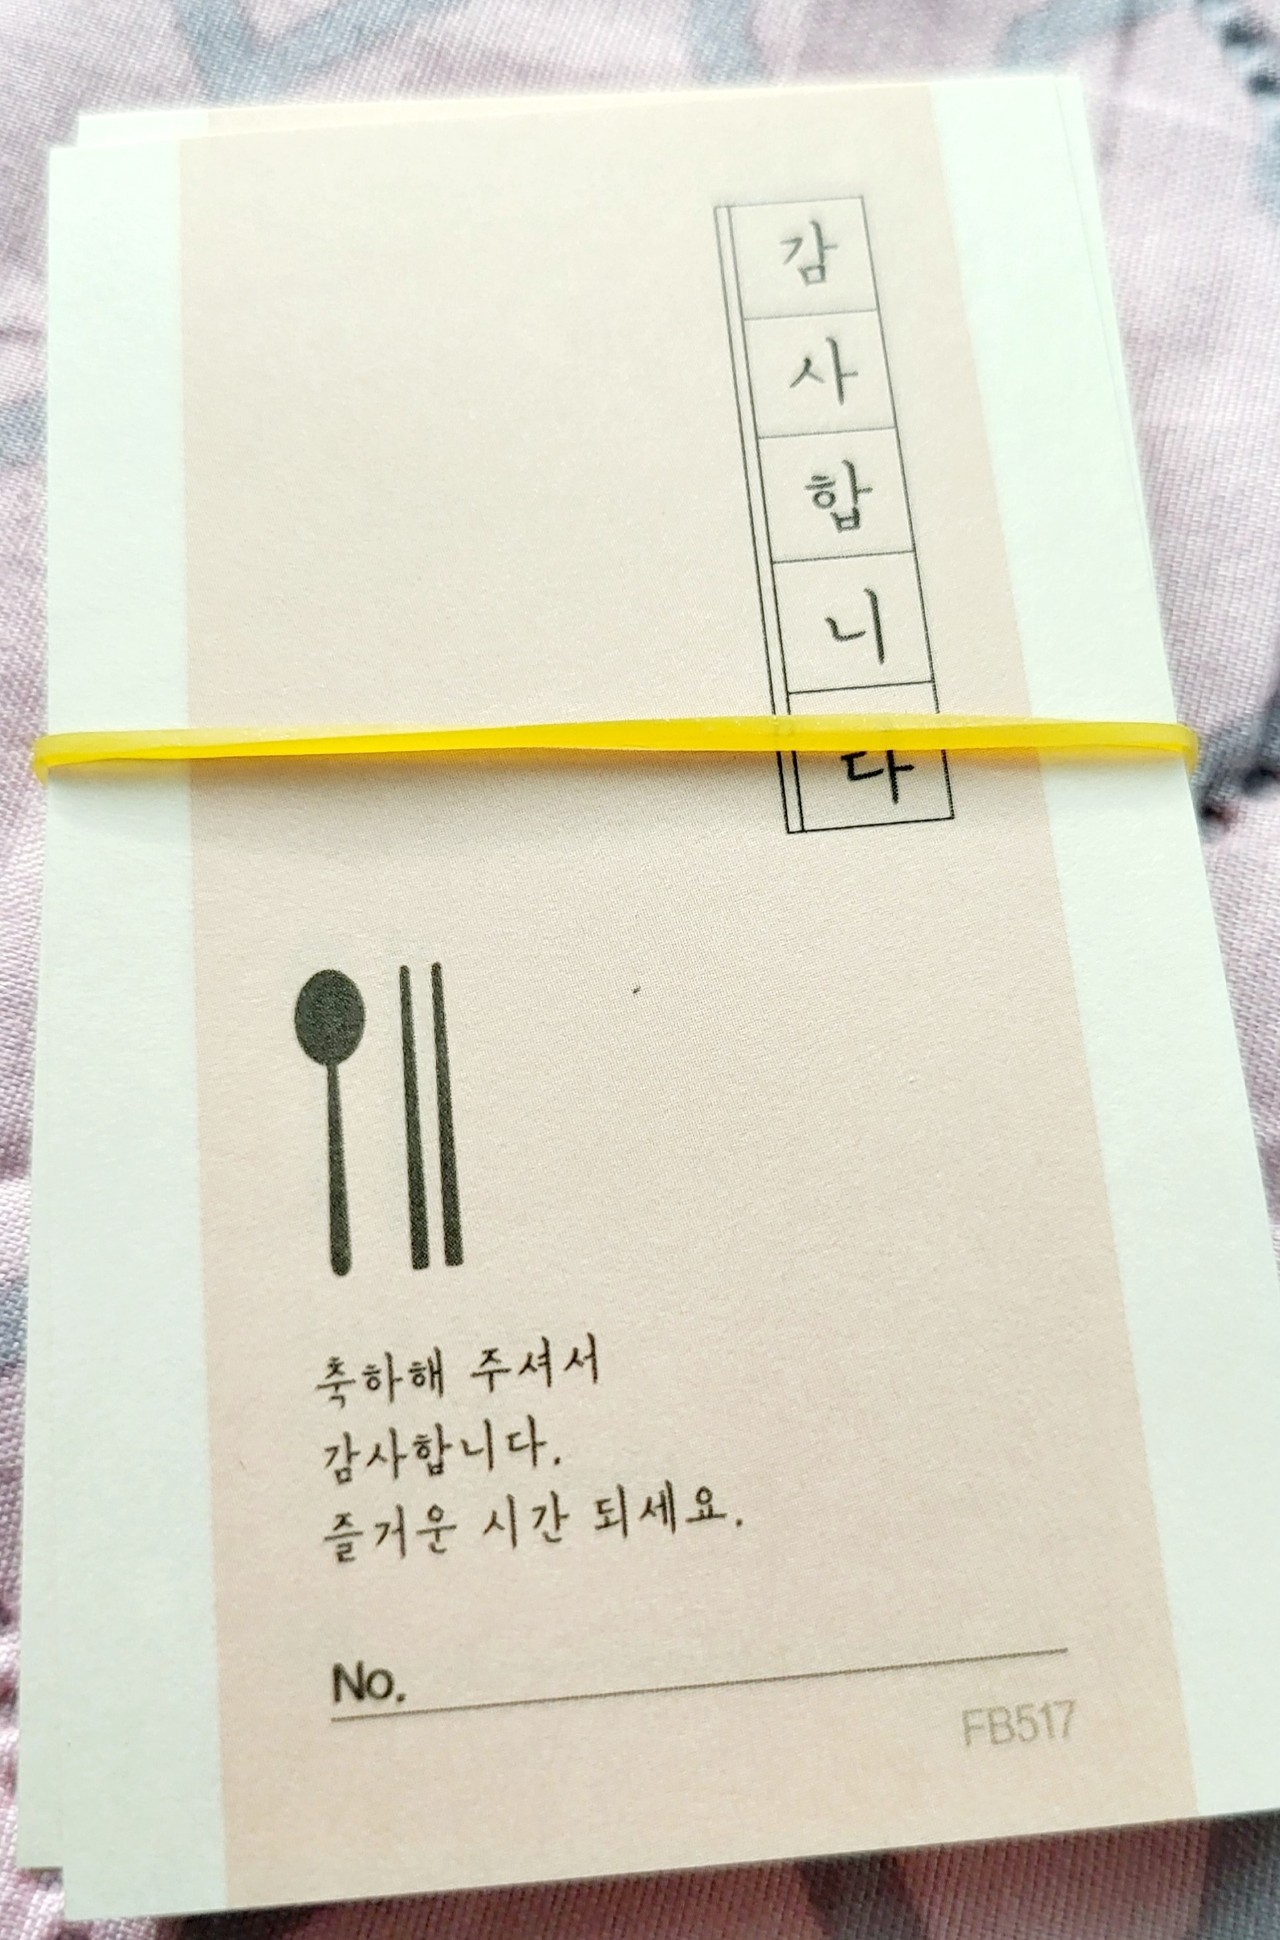 감사합니다
축하해 주셔서
감사합니다.
즐거운 시간 되세요.
No.
FB517